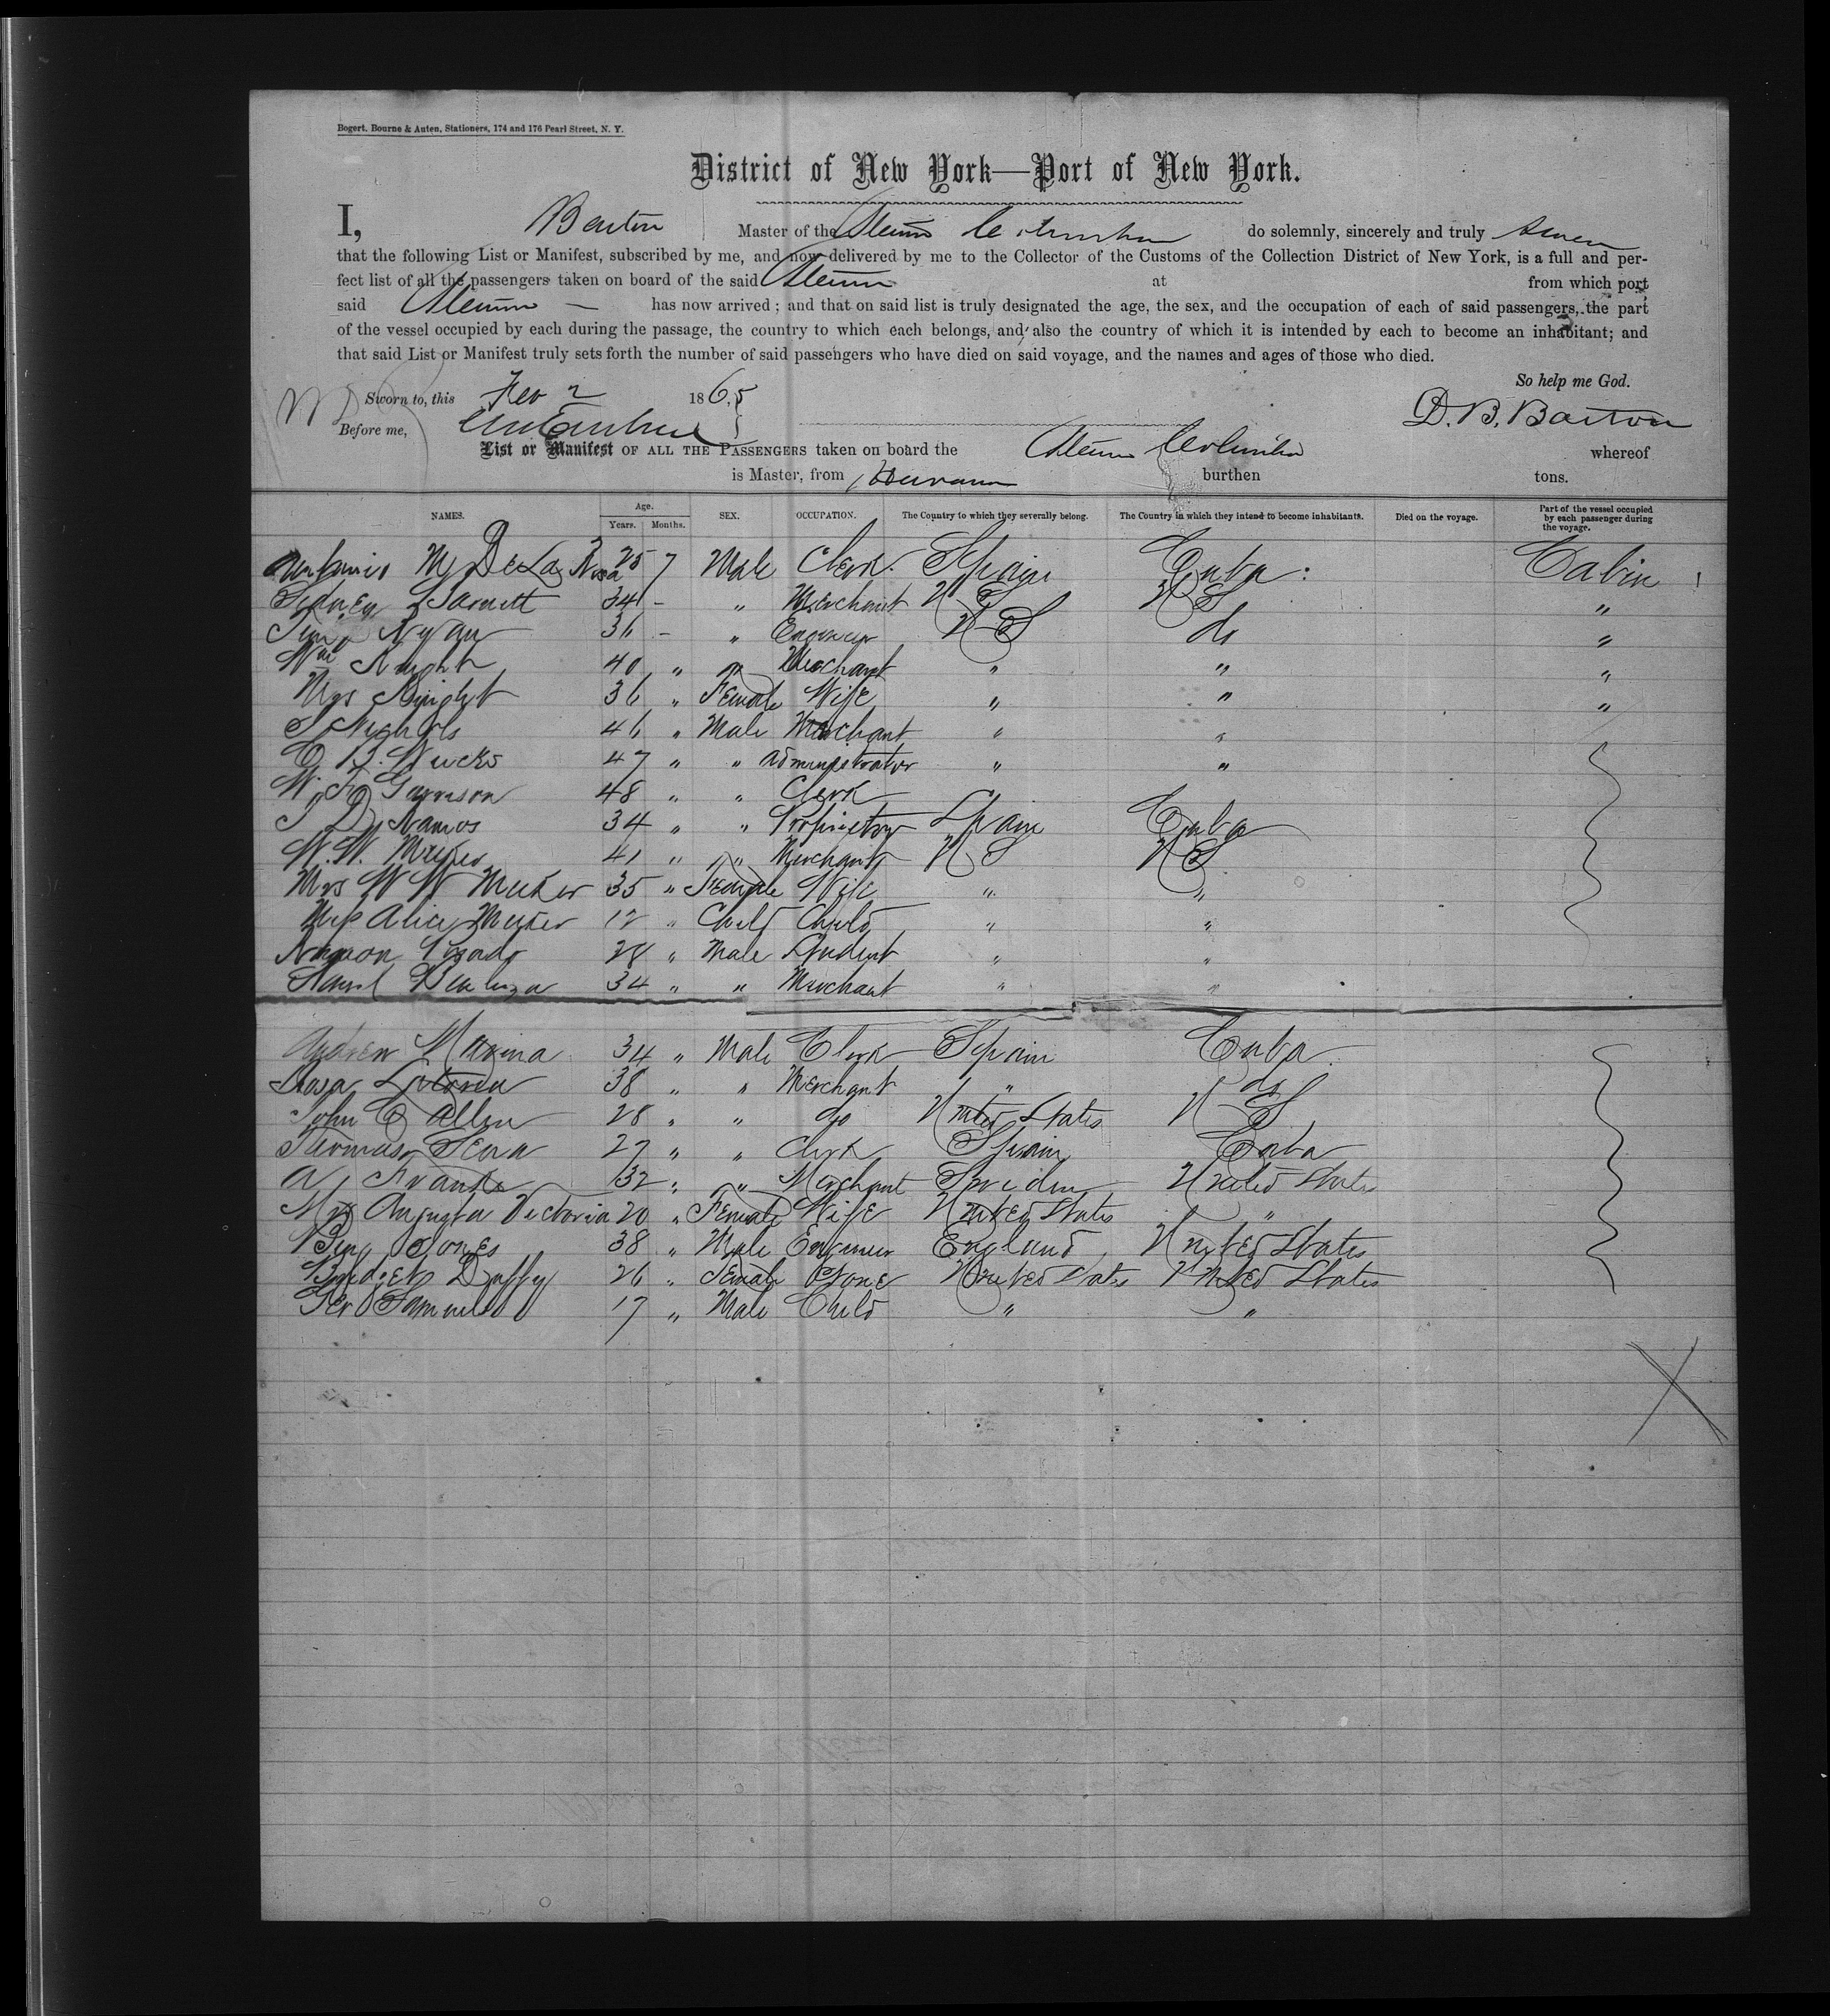 Bogert, Bourne & Auten, Stationers, 174 and 176 Pearl Street, N. Y.
District of New York—Port of New York.
I, Barton Master of the Steamr Columbia do solemnly, sincerely and truly swear
that the following List or Manifest, subscribed by me, and now delivered by me to the Collector of the Customs of the Collection District of New York, is a full and per-
fect list of all the passengers taken on board of the said Steamr at from which port
said Steamr — has now arrived; and that on said list is truly designated the age, the sex, and the occupation of each of said passengers, the part
of the vessel occupied by each during the passage, the country to which each belongs, and also the country of which it is intended by each to become an inhabitant; and
that said List or Manifest truly sets forth the number of said passengers who have died on said voyage, and the names and ages of those who died.
So help me God.
Sworn to, this Feb 2 1865
D. B. Barton
Before me,
List or Manifest OF ALL THE PASSENGERS taken on board the Steamr Columbia whereof
is Master, from Havana burthen tons.
NAMES. Age. Years. Months. SEX. OCCUPATION. The Country to which they severally belong. The Country in which they intend to become inhabitants. Died on the voyage. Part of the vessel occupied by each passenger during the voyage.
Antonio M De La 25 7 Male Clerk. Spain Cuba: Cabin
Sidney 34 - " Merchant U S U S "
Ryan 36 - " Engineer U S do "
Wm Knight 40 " " Merchant " " "
Mrs Knight 36 " Female Wife " " "
S Nichols 46 " Male Merchant " "
47 " " administrator " "
Garrison 48 " " Clerk
Ramos 34 " " Proprietor Spain Cuba
W. W. Meeker 41 " " Merchant U S U S
Mrs W W Meeker 35 " Female Wife " "
Miss Alice Meeker 12 " Child Child " "
Ramon 28 " Male Student " "
34 " " Merchant " "
Andrew Marina 34 " Male Clerk Spain Cuba
Rosa 38 " " Merchant " do
John C Allen 28 " " do United States U S
Thomas 27 " " Clerk Spain Cuba
A 32 " " Merchant Sweden United States
Mrs Augusta Victoria 20 " Female Wife United States "
Benj Jones 38 " Male Engineer England United States
Bridget Duffy 26 " Female None United States United States
Geo Samuels 17 " Male Child " "